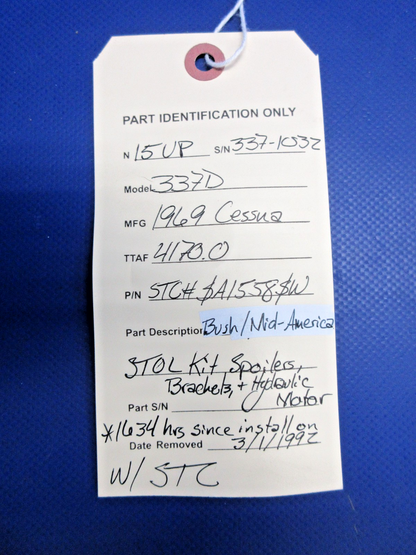 PART IDENTIFICATION ONLY
N 15UP S/N 337-1032
Model 337D
MFG 1969 Cessna
TTAF 4170.0
P/N STC# SA1558SW
Part Description Bush/Mid-America
STOL Kit Spoilers,
Brackets, + Hydraulic
Part S/N Motor
*1634 hrs since install on
Date Removed 3/1/1992
W/ STC